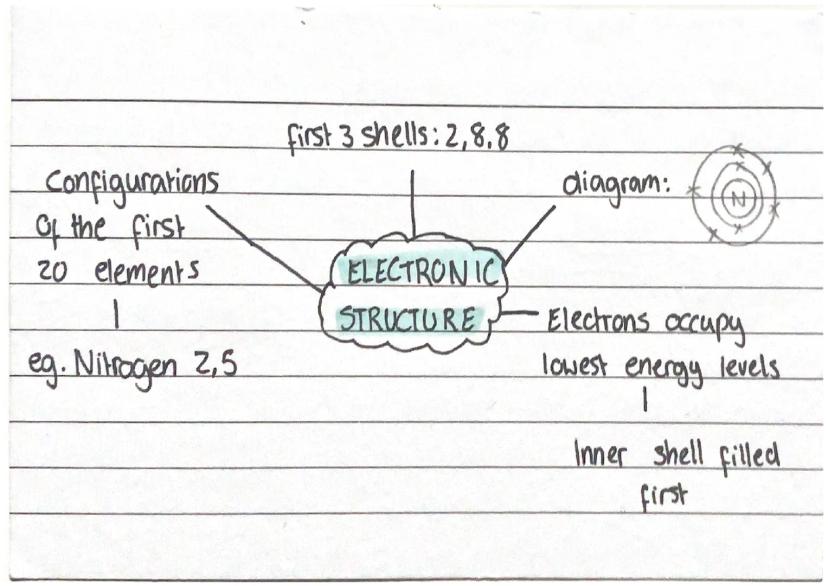 first 3 shells: 2,8,8
Configurations
Of the first
20 elements
eg. Nitrogen 2,5
diagram:
N
ELECTRONIC
STRUCTURE
Electrons occupy
lowest energy levels
Inner shell filled
first